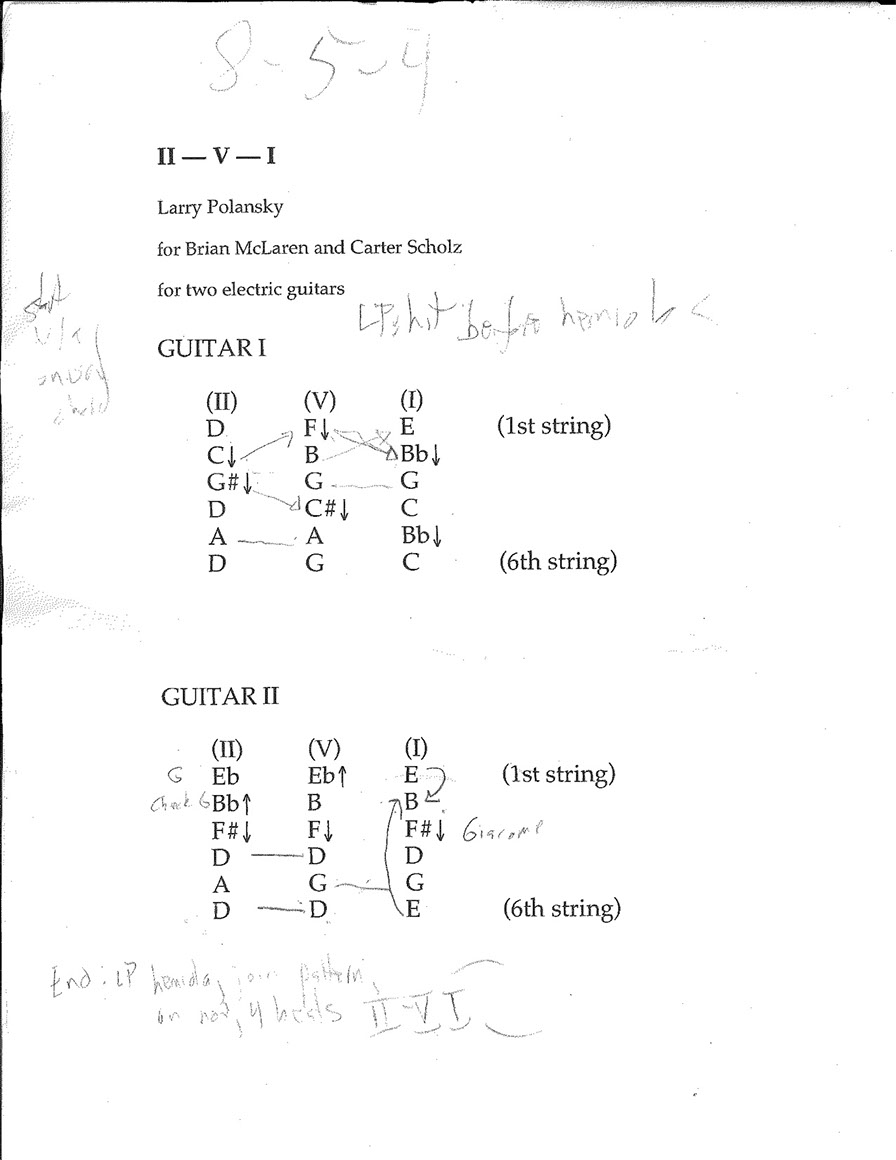 8-5-4
II — V — I
Larry Polansky
for Brian McLaren and Carter Scholz
for two electric guitars
LP: hit before
GUITAR I
(II) (V) (I)
D F↓ E (1st string)
C↓ B Bb↓
G#↓ G G
D C#↓ C
A A Bb↓
D G C (6th string)
GUITAR II
(II) (V) (I)
G Eb Eb↑ E (1st string)
Check G Bb↑ B B
F#↓ F↓ F#↓
D D D
A G G
D D E (6th string)
End: LP hemiola, join pattern,
4 beats II-V I